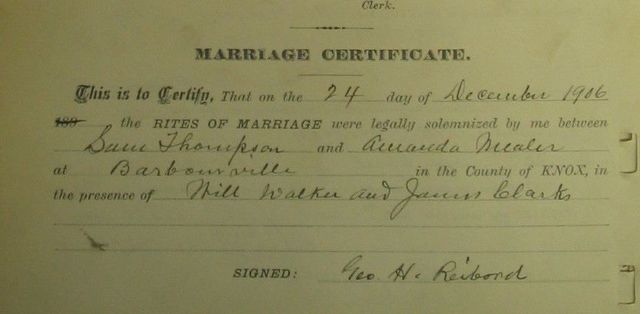 Clerk.
MARRIAGE CERTIFICATE.
This is to Certify, That on the 24 day of December 1906
189 the RITES OF MARRIAGE were legally solemnized by me between
Sam Thompson and Amanda Mealer
at Barbourville in the County of KNOX, in
the presence of Will Walker and James Clarks
SIGNED: Geo. H. Reibord